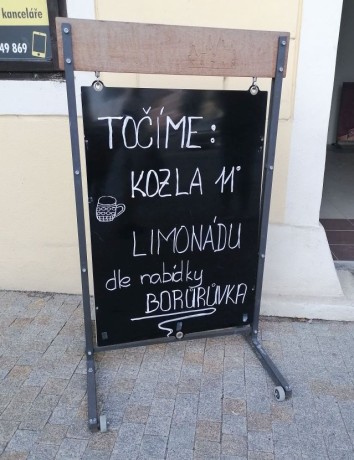 kanceláře
49 869
TOČÍME:
KOZLA 11°
LIMONÁDU
dle nabídky
BORŮRŮVKA